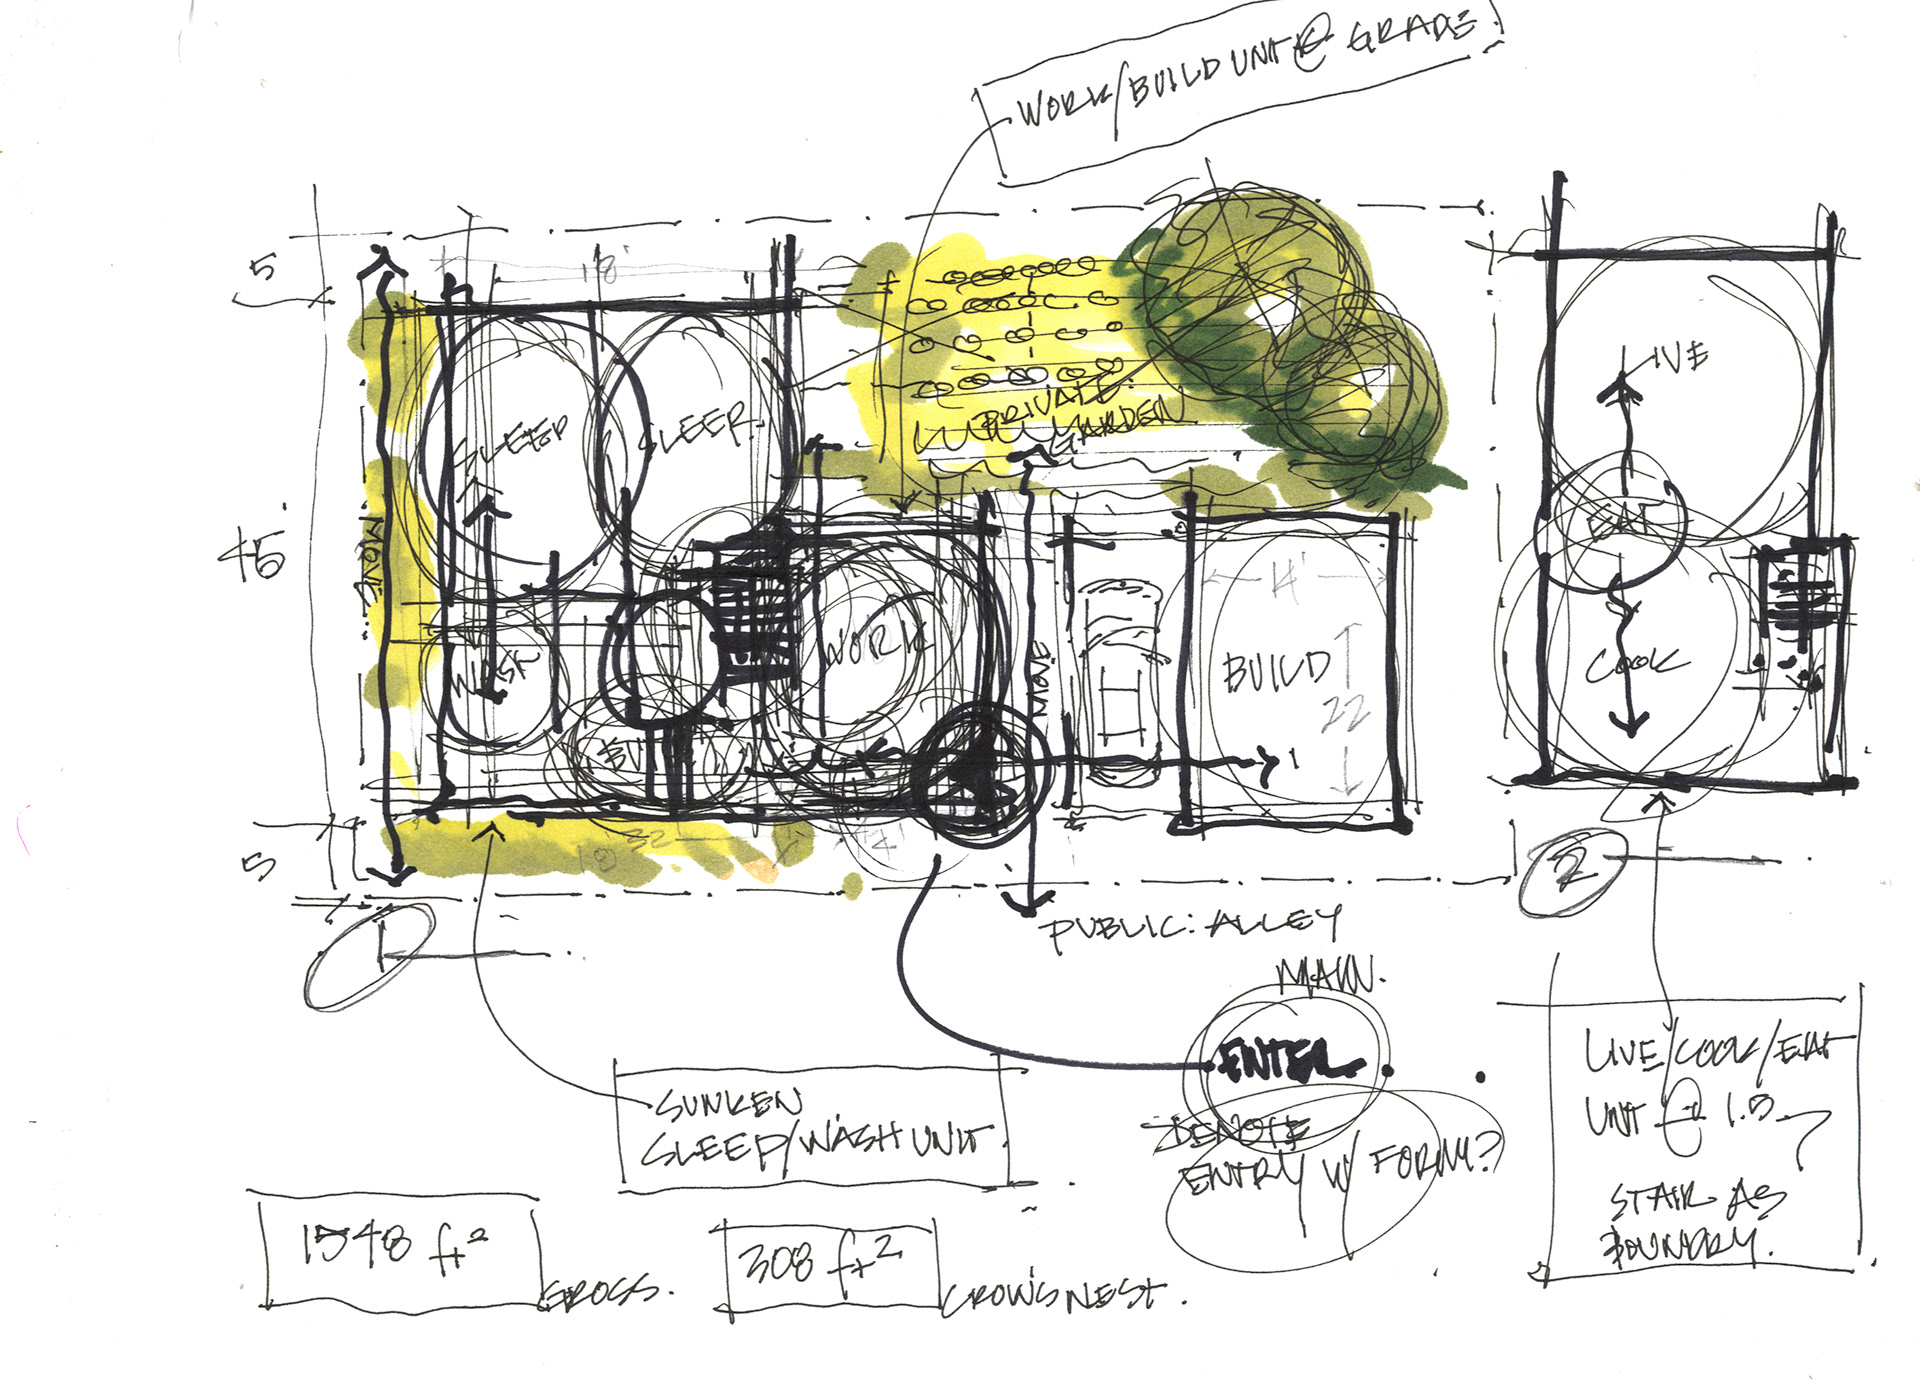 WORK/BUILD UNIT @ GRADE.
5
18'
45'
5
MOVE
SLEEP
SLEEP
WASH
WORK
PRIVATE
GARDEN
MOVE
BUILD
14'
22
32
LIVE
EAT
COOK
1
2
PUBLIC: ALLEY
MAIN.
ENTER
DENOTE
ENTRY W/ FORM?
SUNKEN
SLEEP/WASH UNIT
LIVE/COOK/EAT
UNIT @ 1.5
STAIR AS
BOUNDRY.
1548 ft²
GROSS.
308 ft²
CROW'S NEST.